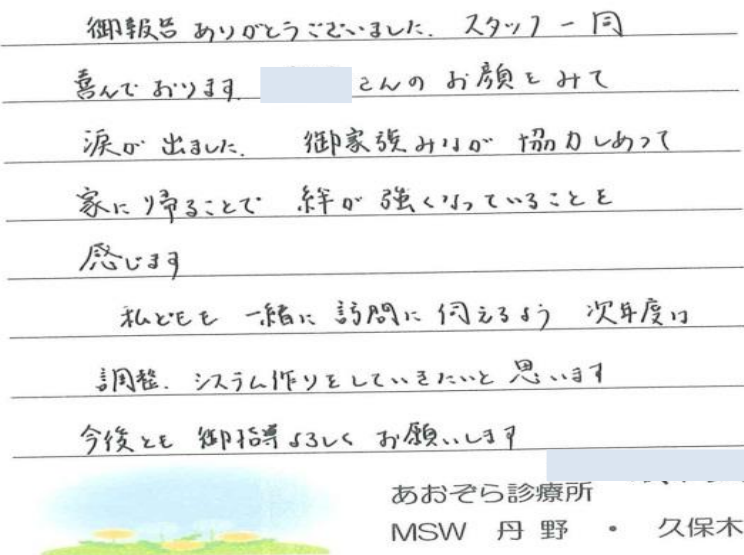 御報告ありがとうございました. スタッフ一同
喜んでおります. さんのお顔をみて
涙が出ました. 御家族みなが協力しあって
家に帰ることで 絆が強くなっていることを
感じます
私どもも一緒に訪問に伺えるよう 次年度は
調整. システム作りをしていきたいと思います
今後とも御指導よろしくお願いします
あおぞら診療所
MSW 丹野 ・ 久保木